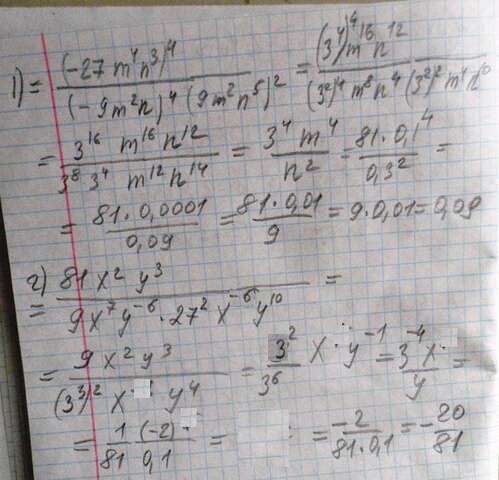 1) = (-27 m⁴n³)⁴ / (-9m²n)⁴ (9m²n⁵)² = (3⁴)⁴ m¹⁶ n¹² / (3²)⁴ m⁸ n⁴ (3²)² m⁴ n¹⁰
= 3¹⁶ m¹⁶ n¹² / 3⁸ 3⁴ m¹² n¹⁴ = 3⁴ m⁴ / n² = 81 · 0,1⁴ / 0,3² =
= 81 · 0,0001 / 0,09 = 81 · 0,01 / 9 = 9 · 0,01 = 0,09
2) = 81 x² y³ / 9x⁷ y⁻⁶ · 27² x⁻⁶ y¹⁰ =
= 9 x² y³ / (3³)² x y⁴ = 3² / 3⁶ x · y⁻¹ = 3⁻⁴ x / y =
= 1 / 81 (-2) / 0,1 = = -2 / 81 · 0,1 = -20 / 81